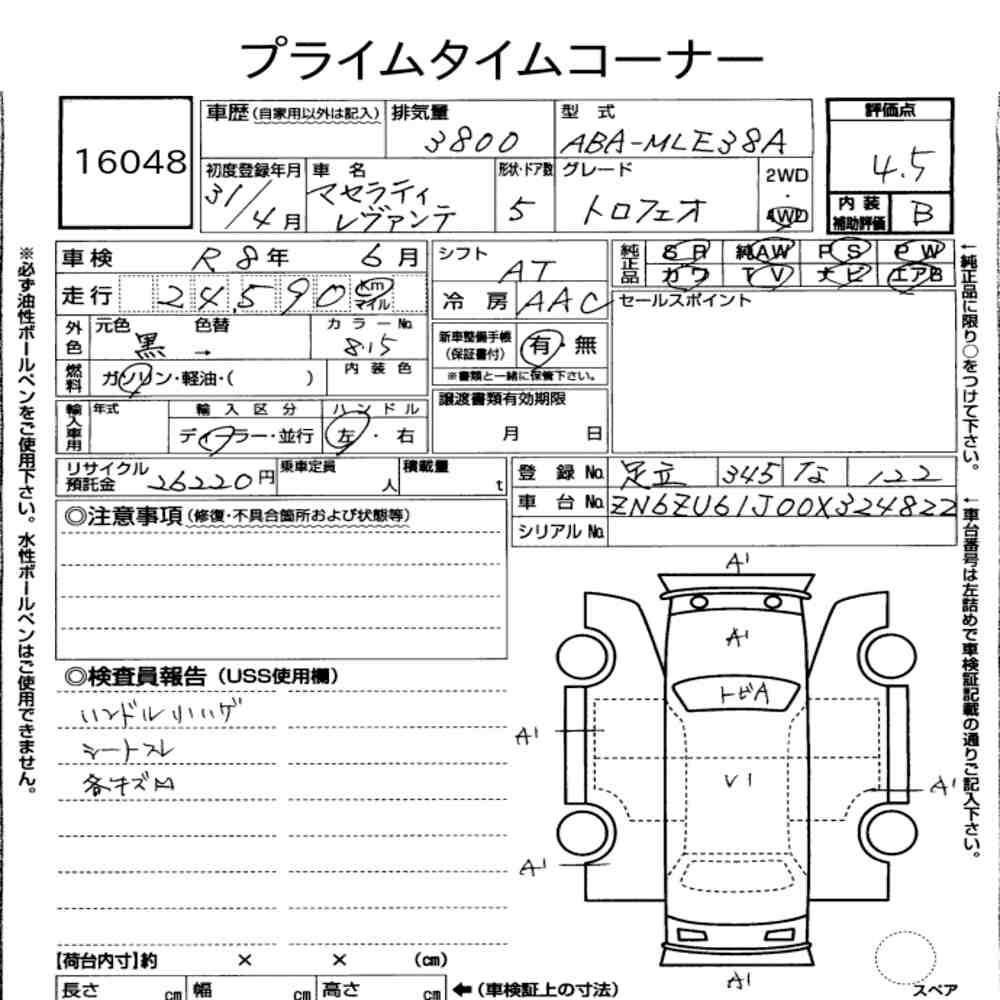 プライムタイムコーナー
16048
車歴(自家用以外は記入) 排気量 3800 型式 ABA-MLE38A
評価点 4.5
初度登録年月 31/4月 車名 マセラティ レヴァンテ 形状・ドア数 5 グレード トロフェオ 2WD・4WD
内装補助評価 B
車検 R8年 6月
シフト AT
純正品 SR 純AW PS PW
カワ TV ナビ エアB
走行 24,590 Km マイル
冷房 AAC
セールスポイント
外色 元色 黒 色替 → カラーNo. 815
新車整備手帳(保証書付) 有・無
※書類と一緒に保管下さい。
燃料 ガソリン・軽油・( ) 内装色
譲渡書類有効期限
月 日
輸入車用 年式 輸入区分 ディーラー・並行 ハンドル 左・右
リサイクル預託金 26220円 乗車定員 人 積載量 t
登録No. 足立 345 な 122
車台No. ZN6ZU61J00X324822
シリアルNo.
◎注意事項(修復・不具合箇所および状態等)
◎検査員報告(USS使用欄)
ハンドルリハゲ
シートスレ
各キズM
A1
A1
トビA
A1
V1
A1
A1
A1
スペア
【荷台内寸】約 × × (cm)
長さ cm 幅 cm 高さ cm ←(車検証上の寸法)
※必ず油性ボールペンをご使用下さい。水性ボールペンはご使用できません。
←純正品に限り○をつけて下さい。
←車台番号は左詰めで車検証記載の通りご記入下さい。